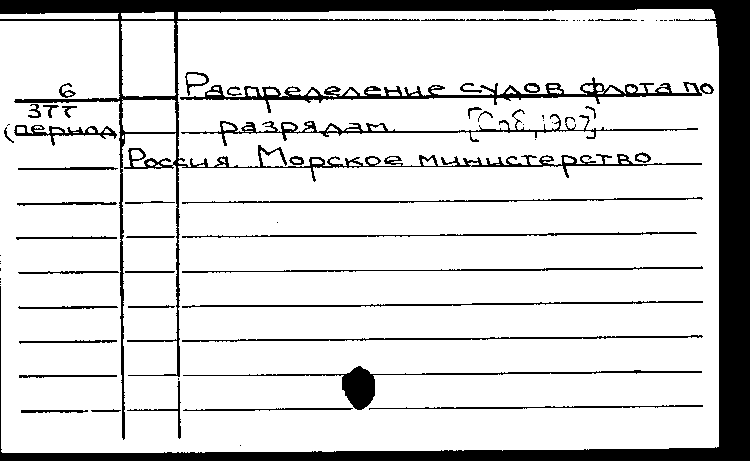 6 Распределение судов флота по
377
(период) разрядам. [Спб, 1907].
Россия. Морское министерство